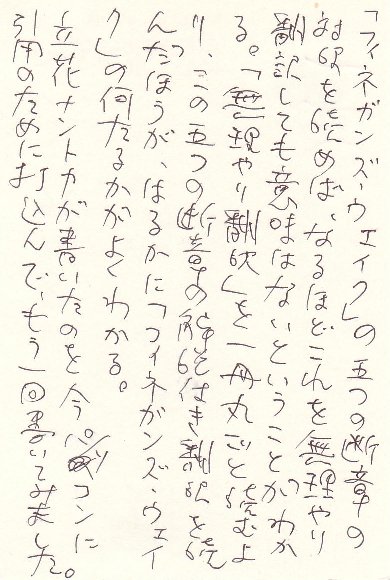 「フィネガンズ・ウェイク」の五つの断章の
対訳を読めば、なるほどこれを無理やり
翻訳しても意味はないということがわか
る。「無理やり翻訳」を一冊丸ごと読むよ
り、この五つの断章の解説付き翻訳を読
んだほうが、はるかに「フィネガンズ・ウェイ
ク」の何たるかがよくわかる。
立花ナントカが書いたのを今パソコンに
引用のために打込んで、もう一回書いてみました。